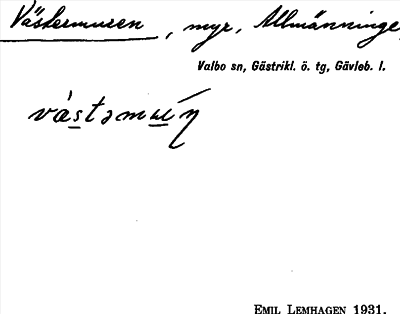 Västermuren, myr, Allmänninge
Valbo sn, Gästrikl. ö. tg, Gävleb. l.
EMIL LEMHAGEN 1931.